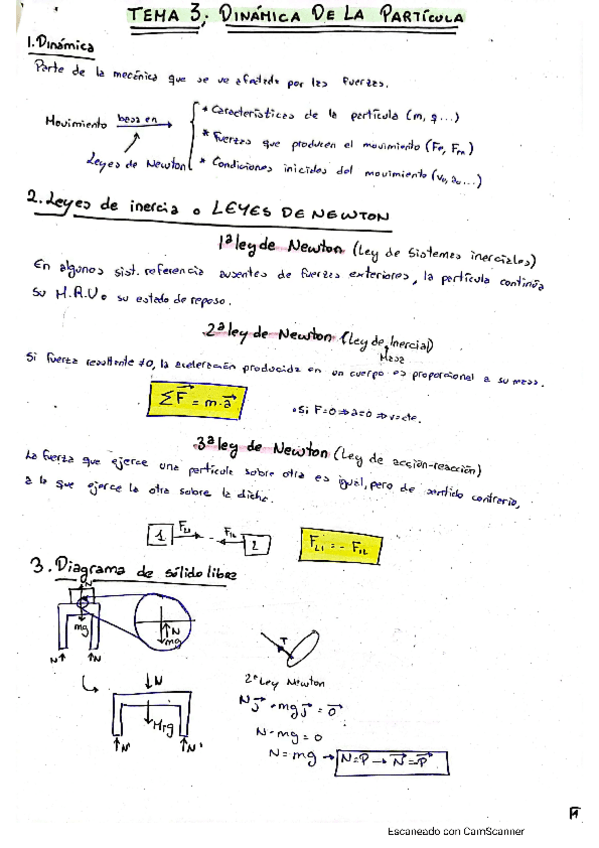 TEMA 3: DINÁMICA DE LA PARTÍCULA
1. Dinámica
Parte de la mecánica que se ve afectada por las fuerzas.
Movimiento basa en
* Características de la partícula (m, q...)
* Fuerzas que producen el movimiento (Fe, Fm)
* Condiciones iniciales del movimiento (v₀, a₀...)
Leyes de Newton
2. Leyes de inercia o LEYES DE NEWTON
1ª ley de Newton (Ley de Sistemas inerciales)
En algunos sist. referencia ausentes de fuerzas exteriores, la partícula continúa
su M.R.U o su estado de reposo.
2ª ley de Newton (Ley de Inercial)
Masa
Si fuerza resultante ≠0, la aceleración producida en un cuerpo es proporcional a su masa.
ΣF⃗ = m·a⃗
• Si F=0 ⇒ a=0 ⇒ v=cte.
3ª ley de Newton (Ley de acción-reacción)
La fuerza que ejerce una partícula sobre otra es igual, pero de sentido contrario,
a la que ejerce la otra sobre la dicha.
1 F₂₁ F₁₂ 2
F₂₁ = - F₁₂
3. Diagrama de sólido libre
N
mg
N N
N
mg
T
2ª Ley Newton
N j⃗ - mg j⃗ = 0⃗
N - mg = 0
N = mg → N=P → N⃗ = P⃗
N
N' N'
Escaneado con CamScanner